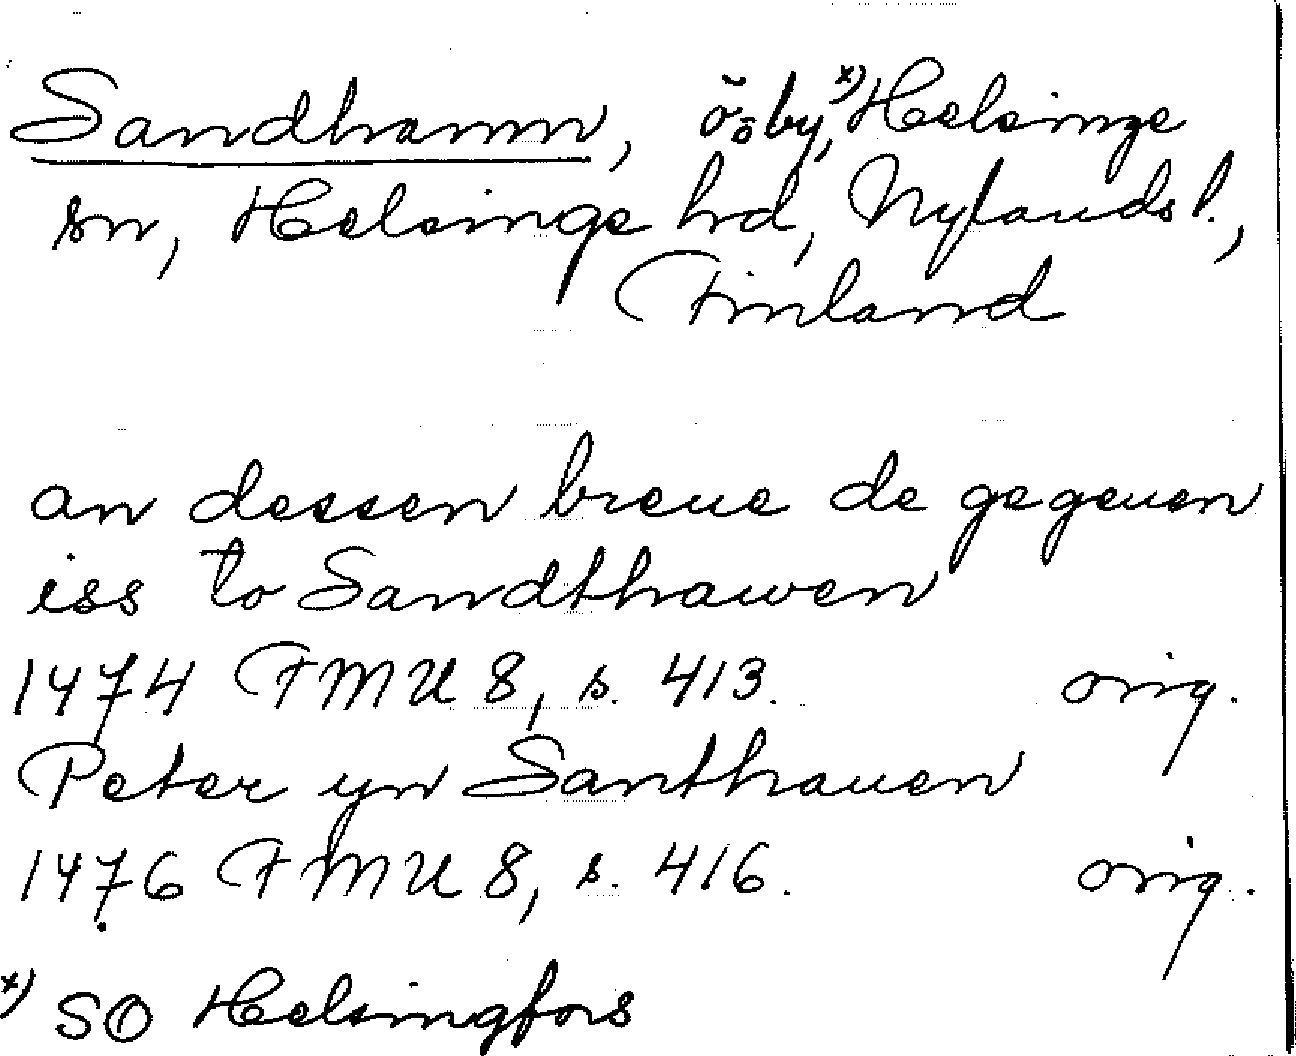 Sandhamn, ö. ö. by, x) Helsinge
sn, Helsinge hrd, Nylands l.,
Finland
an dessen breue de gegeuen
iss to Sandthawen
1474 FMU 8, s. 413. orig.
Peter yn Santhauen
1476 FMU 8, s. 416. orig.
x) SO Helsingfors